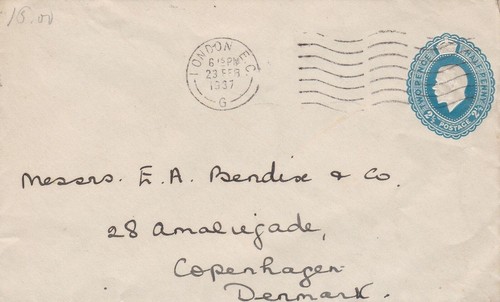 15.00
LONDON E.C.
6 15 PM
23 FEB
1937
G
TWO PENCE HALFPENNY
POSTAGE
2½ 2½
Messrs. E. A. Bendix & Co.
28 Amaliegade,
Copenhagen
Denmark.